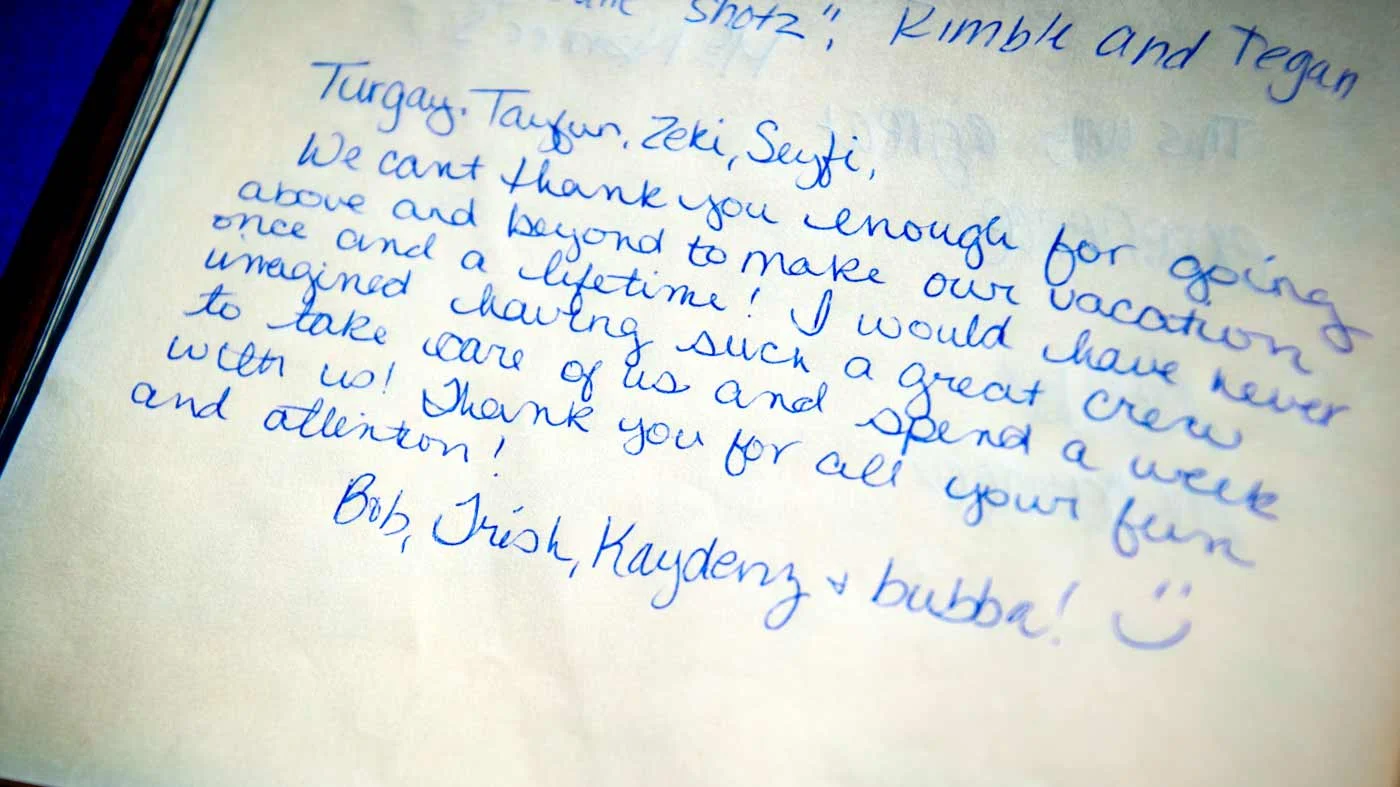 Shotz", Kimble and Tegan
Turgay, Tayfun, Zeki, Seyfi,
We cant thank you enough for going
above and beyond to make our vacation
once and a lifetime! I would have never
imagined having such a great crew
to take care of us and spend a week
with us! Thank you for all your fun
and attention!
Bob, Trish, Kaydenz + bubba!